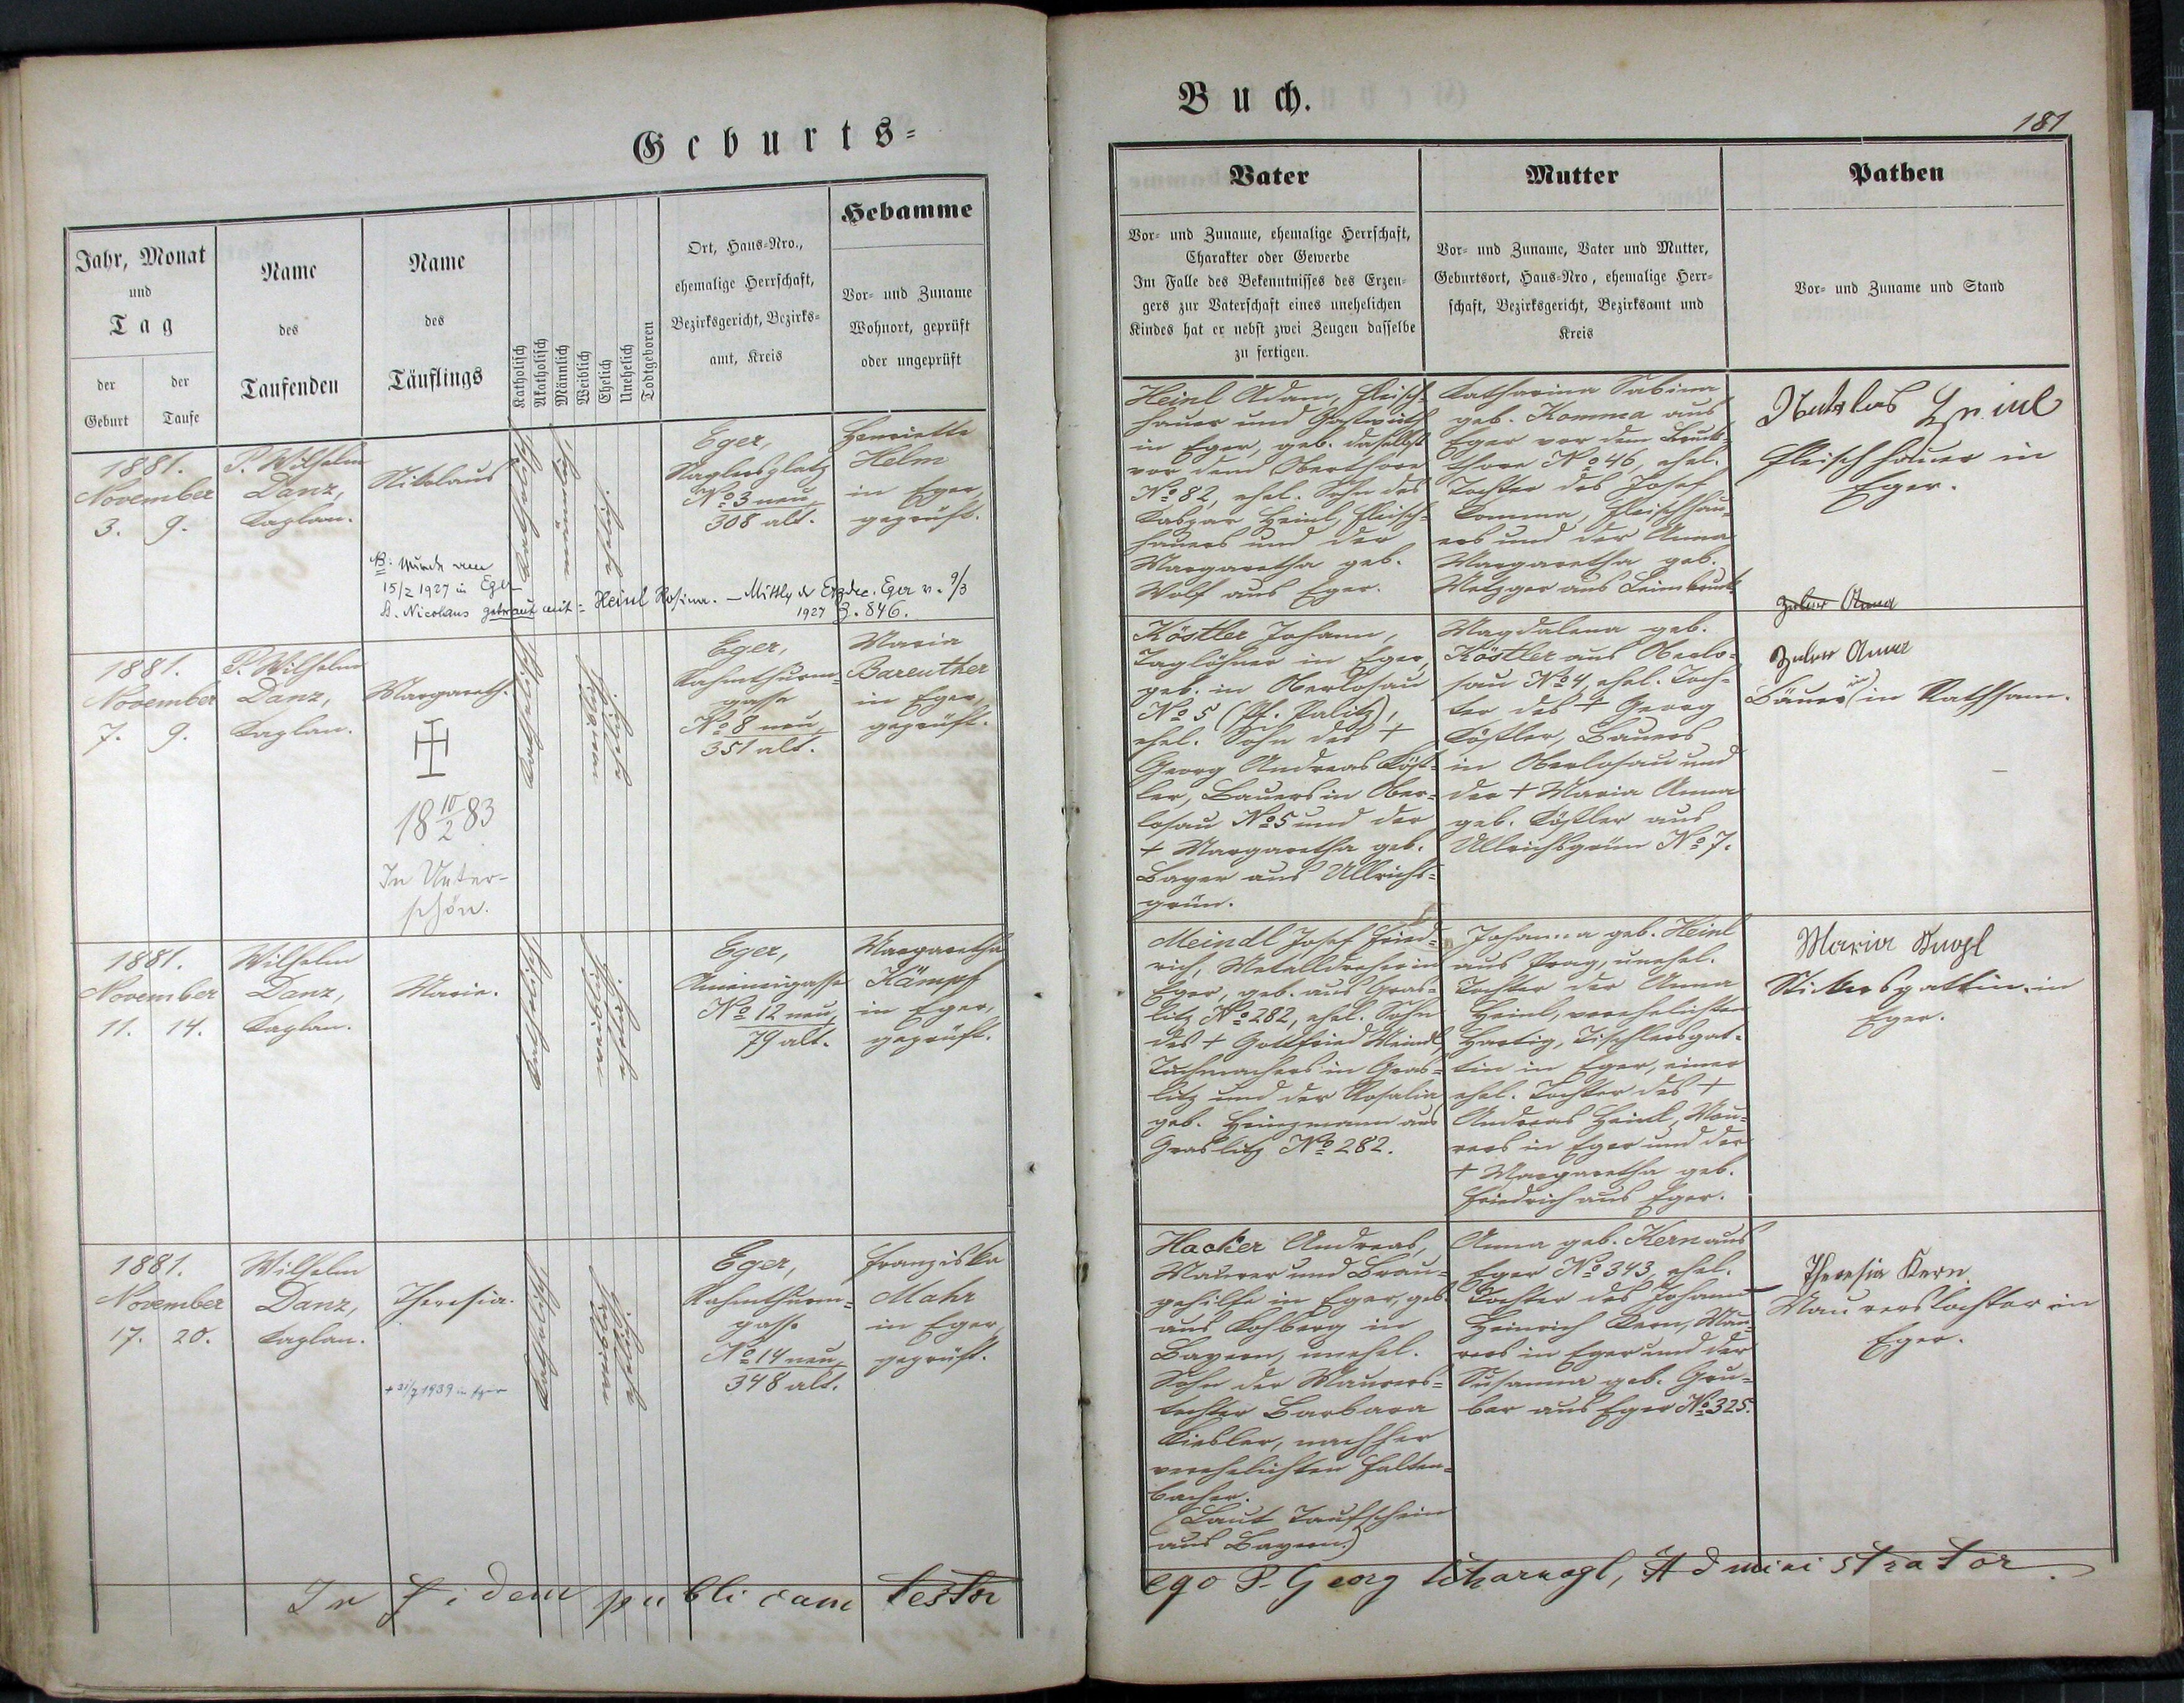 Geburts-
Buch.
181
Jahr, Monat
und
Tag
der Geburt
der Taufe
Name
des
Taufenden
Name
des
Täuflings
Katholisch
Akatholisch
Männlich
Weiblich
Ehelich
Unehelich
Todtgeboren
Ort, Haus-Nro.,
ehemalige Herrschaft,
Bezirksgericht, Bezirks-
amt, Kreis
Hebamme
Vor- und Zuname
Wohnort, geprüft
oder ungeprüft
Vater
Vor- und Zuname, ehemalige Herrschaft,
Charakter oder Gewerbe
Im Falle des Bekenntnisses des Erzeu-
gers zur Vaterschaft eines unehelichen
Kindes hat er nebst zwei Zeugen dasselbe
zu fertigen.
Mutter
Vor- und Zuname, Vater und Mutter,
Geburtsort, Haus-Nro, ehemalige Herr-
schaft, Bezirksgericht, Bezirksamt und
Kreis
Pathen
Vor- und Zuname und Stand
1881.
November
3. 9.
P. Wilhelm
Danz,
Kaplan.
Nikolaus
NB: Wurde am
15/2 1927 in Eger
St. Nicolaus getraut mit = Heinl Rosina. – Mittlg d. Erzdec. Eger v. 9/3
1927 Z. 846.
Katholisch
männlich
ehelich
Eger,
No 3 neu,
308 alt.
Henriette
Helm
in Eger,
geprüft.
Heinl Adam, Fleisch-
hauer und Gastwirth
in Eger, geb. daselbst
vor dem Oberthore
No 82, ehel. Sohn des
Kaspar Heinl, Fleisch-
hauers und der
Margaretha geb.
Wolf aus Eger.
Katharina Sabina
geb. Komma aus
Eger vor dem Bruck-
thore No 46, ehel.
Tochter des Josef
Komma, Fleischhau-
ers und der Anna
Margaretha geb.
Metzger aus
Heinl
Fleischhauer in
Eger.
Anna
1881.
November
7. 9.
P. Wilhelm
Danz,
Kaplan.
Margareth.
18 10/2 83
In Unter-
schön.
Katholisch
weiblich
ehelich
Eger,
Rahmthurm-
gasse
No 8 neu,
351 alt.
Maria
Bareuther
in Eger,
geprüft.
Köstler Johann,
Taglöhner in Eger,
geb. in Oberlosau
No 5 (Pf. Palitz),
ehel. Sohn des +
Georg Andreas Köst-
ler, Bauers in Ober-
losau No 5 und der
+ Margaretha geb.
Bayer aus Ullrichs-
grün.
Magdalena geb.
Köstler aus Oberlo-
sau No 4, ehel. Toch-
ter des + Georg
Köstler, Bauers
in Oberlosau und
der + Maria Anna
geb. Köstler aus
Ullrichsgrün No 7.
Anna
Bäuerin in Rathsam.
1881.
November
11. 14.
Wilhelm
Danz,
Kaplan.
Maria.
Katholisch
weiblich
ehelich
Eger,
No 12 neu,
79 alt.
Margaretha
Kämpf
in Eger,
geprüft.
Meindl Josef Fried-
rich, Metalldreher in
Eger, geb. aus Gras-
litz No 282, ehel. Sohn
des + Gottfried Meindl,
Tuchmachers in Gras-
litz und der Rosalia
geb. Heinzmann aus
Graslitz No 282.
Johanna geb. Heinl
aus Prag, unehel.
Tochter der Anna
Heinl, verehelichten
Hartig, Tischlersgat-
tin in Eger, einer
ehel. Tochter des +
Andreas Heinl, Mau-
rers in Eger und der
+ Margaretha geb.
Friedrich aus Eger.
Maria
in
Eger.
1881.
November
17. 20.
Wilhelm
Danz,
Kaplan.
Theresia.
+ 31/7 1939 in Eger
Katholisch
weiblich
ehelich
Eger,
Rahmthurm-
gasse
No 14 neu,
348 alt.
Franziska
Mahr
in Eger,
geprüft.
Hacker Andreas,
Maurer und Brau-
gehilfe in Eger, geb.
aus Kohberg in
Bayern, unehel.
Sohn der Maurers-
tochter Barbara
Kiesler, nachher
verehelichten Falten-
bacher.
(Laut Taufschein
aus Bayern.)
Anna geb. Kern aus
Eger No 343, ehel.
Tochter des Johann
Heinrich Kern, Mau-
rers in Eger und der
Susanna geb. Gru-
ber aus Eger No 325.
Theresia Kern
Maurerstochter in
Eger.
In fidem publicam testor
ego P. Georg Scharnagl, Administrator.